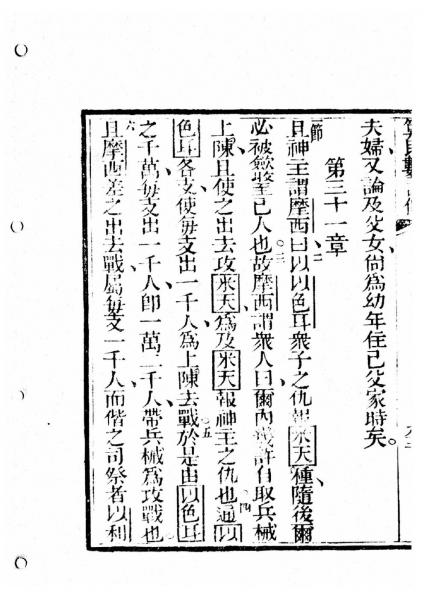 夫婦又論及父女尙爲幼年住己父家時矣。
第三十一章
一節 且神主謂摩西曰、二以以色耳衆子之仇報米天種、隨後爾
必被歛至己人也。三故摩西謂衆人曰爾內幾許自取兵械
上陳且使之出去攻米天、爲及米天報神主之仇也。四通以
色耳各支使每支出一千人爲上陳去戰、五於是由以色耳
之千萬每支出一千人、卽一萬二千人帶兵械爲攻戰也
六且摩西差之出去戰、屬每支一千人、而偕之司祭者以利